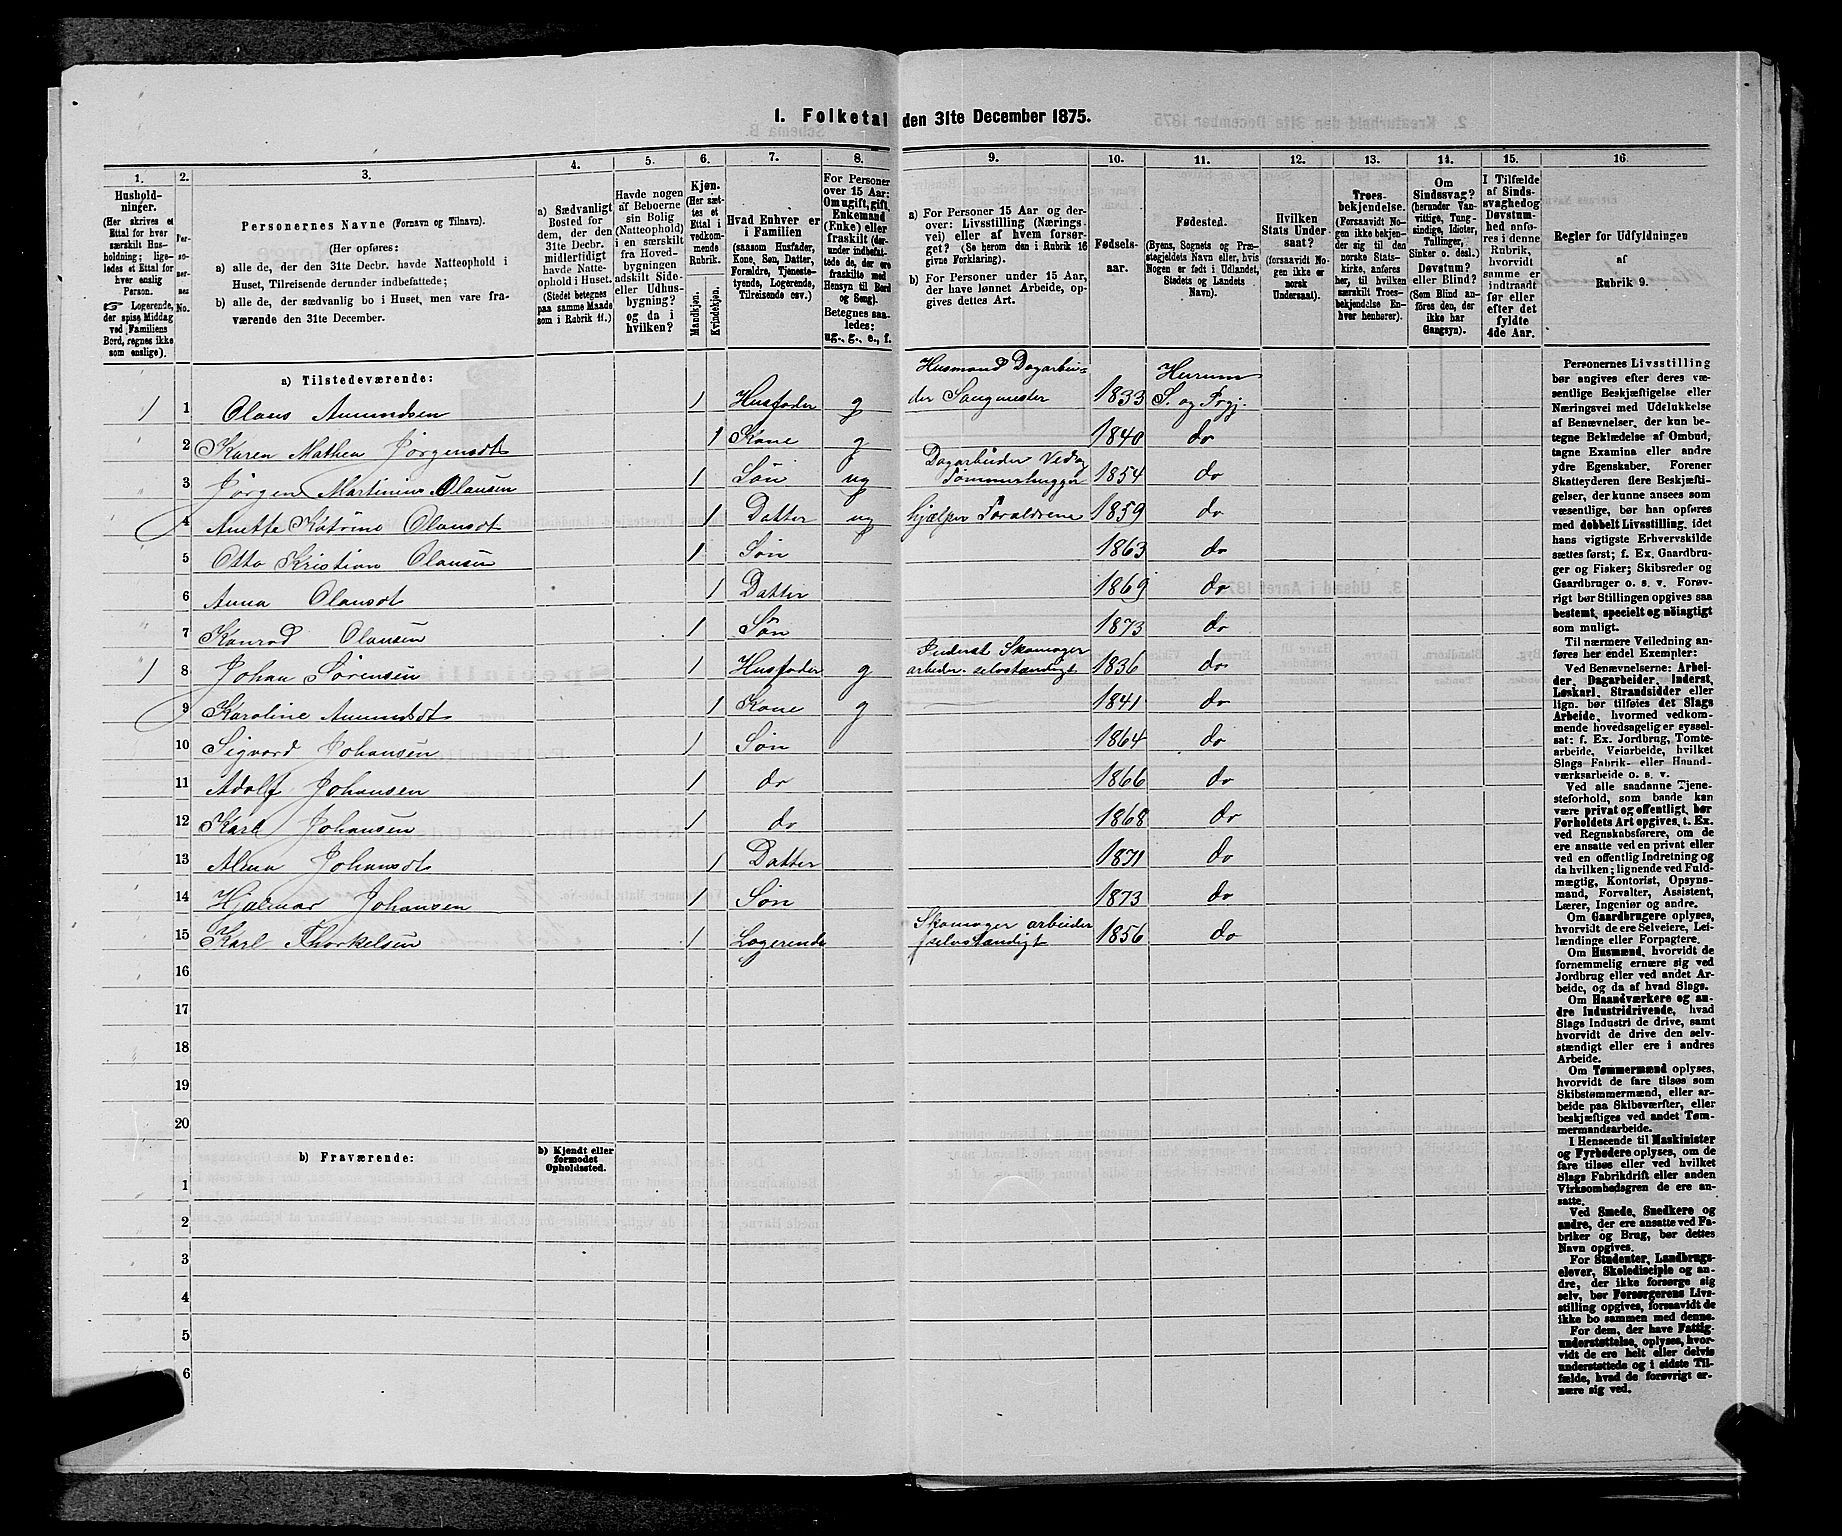 1. Folketal den 31te December 1875.
1.
2.
3.
4.
5.
6.
7.
8.
9.
10.
11.
12.
13.
14.
15.
16.
Hushold-
ninger.
(Her skrives et
Ettal for hver
særskilt Hus-
holdning; lige-
ledes et Ettal for
hver enslig
Person.
☞ Logerende,
der spise Middag
ved Familiens
Bord, regnes ikke
som enslige).
Per-
soner-
nes
No.
Personernes Navne (Fornavn og Tilnavn).
(Her opføres:
a) alle de, der den 31te Decbr. havde Natteophold i
Huset, Tilreisende derunder indbefattede;
b) alle de, der sædvanlig bo i Huset, men vare fra-
værende den 31te December.
a) Sædvanligt
Bosted for
dem, der den
31te Decbr.
midlertidigt
havde Natte-
ophold i Huset.
(Stedet betegnes
paa samme Maade
som i Rubrik 11.)
Havde nogen
af Beboerne
sin Bolig
(Natteophold)
i en særskilt
fra Hoved-
bygningen
adskilt Side-
eller Udhus-
bygning? og
og da i
hvilken?
Kjøn.
(Her sæt-
tes et
Ettal i
vedkom-
mende
Rubrik.
Mandkjøn.
Kvindekjøn.
Hvad Enhver er
i Familien
(saasom Husfader,
Kone, Søn, Datter,
Forældre, Tjeneste-
tyende, Logerende,
Tilreisende osv.)
For Personer
over 15 Aar:
Om ugift, gift,
Enkemand
(Enke) eller
fraskilt (der-
under indbefat-
tede de, der ere
fraskilte med
Hensyn til Bord
og Seng).
Betegnes saa-
ledes:
ug., g., e., f.
a) For Personer 15 Aar og der-
over: Livsstilling (Nærings-
vei) eller af hvem forsør-
get? (Se herom den i Rubrik 16
givne Forklaring).
b) For Personer under 15 Aar,
der have lønnet Arbeide, op-
gives dettes Art.
Fødsels-
aar.
Fødested.
(Byens, Sognets og Præ-
stegjeldets Navn eller, hvis
Nogen er født i Udlandet,
Stedets og Landets
Navn).
Hvilken
Stats Under-
saat?
(forsaavidt No-
gen ikke er
norsk
Undersaat).
Troes-
bekjendelse.
(Forsaavidt No-
gen ikke bekjen-
der sig til den
norske Stats-
kirke, anføres
her, til hvilken
særskilt Troes-
bekjendelse En-
hver henhører).
Om
Sindssvag?
(herunder Van-
vittige, Tung-
sindige, Idioter,
Tullinger,
Sinker o. desl.)
Døvstum?
eller Blind?
(Som Blind an-
føres den, der
ikke har
Gangsyn).
I Tilfælde
af Sinds-
svaghed og
Døvstum-
hed anfø-
res i denne
Rubrik,
hvorvidt
samme er
indtraadt
før eller
efter det
fyldte
4de Aar.
Regler for Udfyldningen
af
Rubrik 9.
a) Tilstedeværende:
1 1 Olaus Amundsen 1 Husfader g Husmand Dagarbei-
der Saugmester 1833 Hurum
S. og Prgj.
2 Karen Mathea Jørgensdt 1 Kone g 1840 do
3 Jørgen Martinius Olausen 1 Søn ug Dagarbeider Ved og
Tømmerhugger 1854 do
4 Anette Katrine Olausdt 1 Datter ug hjælper Foraldrene 1859 do
5 Otto Kristian Olausen 1 Søn 1863 do
6 Anna Olausdt 1 Datter 1869 do
7 Konrad Olausen 1 Søn 1873 do
1 8 Johan Sørensen 1 Husfader g Inderst Skomager
arbeider selvstændigt 1836 do
9 Karoline Amundsdt 1 Kone g 1841 do
10 Sigvard Johansen 1 Søn 1864 do
11 Adolf Johansen 1 do 1866 do
12 Karl Johansen 1 do 1868 do
13 Alma Johansdt 1 Datter 1871 do
14 Hjalmar Johansen 1 Søn 1873 do
15 Karl Thorkelsen 1 Logerende Skomager arbeider
selvstændigt 1856 do
16
17
18
19
20
b) Fraværende:
b) Kjendt eller
formodet
Opholdssted.
1
2
3
4
5
6
Personernes Livsstilling
bør angives efter deres væ-
sentlige Beskjæftigelse eller
Næringsvei med Udelukkelse
af Benævnelser, der kun be-
tegne Beklædelse af Ombud,
tagne Examina eller andre
ydre Egenskaber. Forener
Skatteyderen flere Beskjæfti-
gelser, der kunne ansees som
væsentlige, bør han opføres
med dobbelt Livsstilling, idet
hans vigtigste Erhvervskilde
sættes først; f. Ex. Gaardbru-
ger og Fisker; Skibsreder og
Gaardbruger o. s. v. Forøv-
rigt bør Stillingen opgives saa
bestemt, specielt og nöiagtigt
som muligt.
Til nærmere Veiledning an-
føres her endel Exempler:
Ved Benævnelserne: Arbei-
der, Dagarbeider, Inderst,
Løskarl, Strandsidder eller
lign. bør tilføies det Slags
Arbeide, hvormed vedkom-
mende hovedsagelig er syssel-
sat; f. Ex. Jordbrug, Tomte-
arbeide, Veiarbeide, hvilket
Slags Fabrik- eller Haand-
værksarbeide o. s. v.
Ved alle saadanne Tjene-
steforhold, som baade kan
være privat og offentligt, bør
Forholdets Art opgives, t. Ex.
ved Regnskabsførere, om de
ere ansatte ved en privat eller
ved en offentlig Indretning og
da hvilken; lignende ved Fuld-
mægtig, Kontorist, Opsyns-
mand, Forvalter, Assistent,
Lærer, Ingeniør og andre.
Om Gaardbrugere oplyses,
hvorvidt de ere Selveiere, Lei-
lændinge eller Forpagtere.
Om Husmænd, hvorvidt de
fornemmelig ernære sig ved
Jordbrug eller ved andet Ar-
beide, og da af hvad Slags.
Om Haandværkere og an-
dre Industridrivende, hvad
Slags Industri de drive, samt
hvorvidt de drive den selv-
stændigt eller ere i andres
Arbeide.
Om Tømmermænd oplyses,
hvorvidt de fare tilsøs som
Skibstømmermænd, eller ar-
beide paa Skibsværfter, eller
beskjæftiges ved andet Tøm-
mermandsarbeide.
I Henseende til Maskinister
og Fyrbødere oplyses, om de
fare tilsøs eller ved hvilket
Slags Fabrikdrift eller anden
Virksomhedsgren de ere an-
satte.
Ved Smede, Snedkere og
andre, der ere ansatte ved Fa-
briker og Brug, bør dettes
Navn opgives.
For Studenter, Landbrugs-
elever, Skoledisciple og an-
dre, der ikke forsørge sig
selv, bør Forsørgerens Livs-
stilling opgives, forsaavidt de
ikke bo sammen med denne.
For dem, der have Fattig-
understøttelse, oplyses, hvor-
vidt de ere helt eller delvis
understøttede og i sidste Til-
fælde, hvad de forøvrigt er-
nære sig ved.